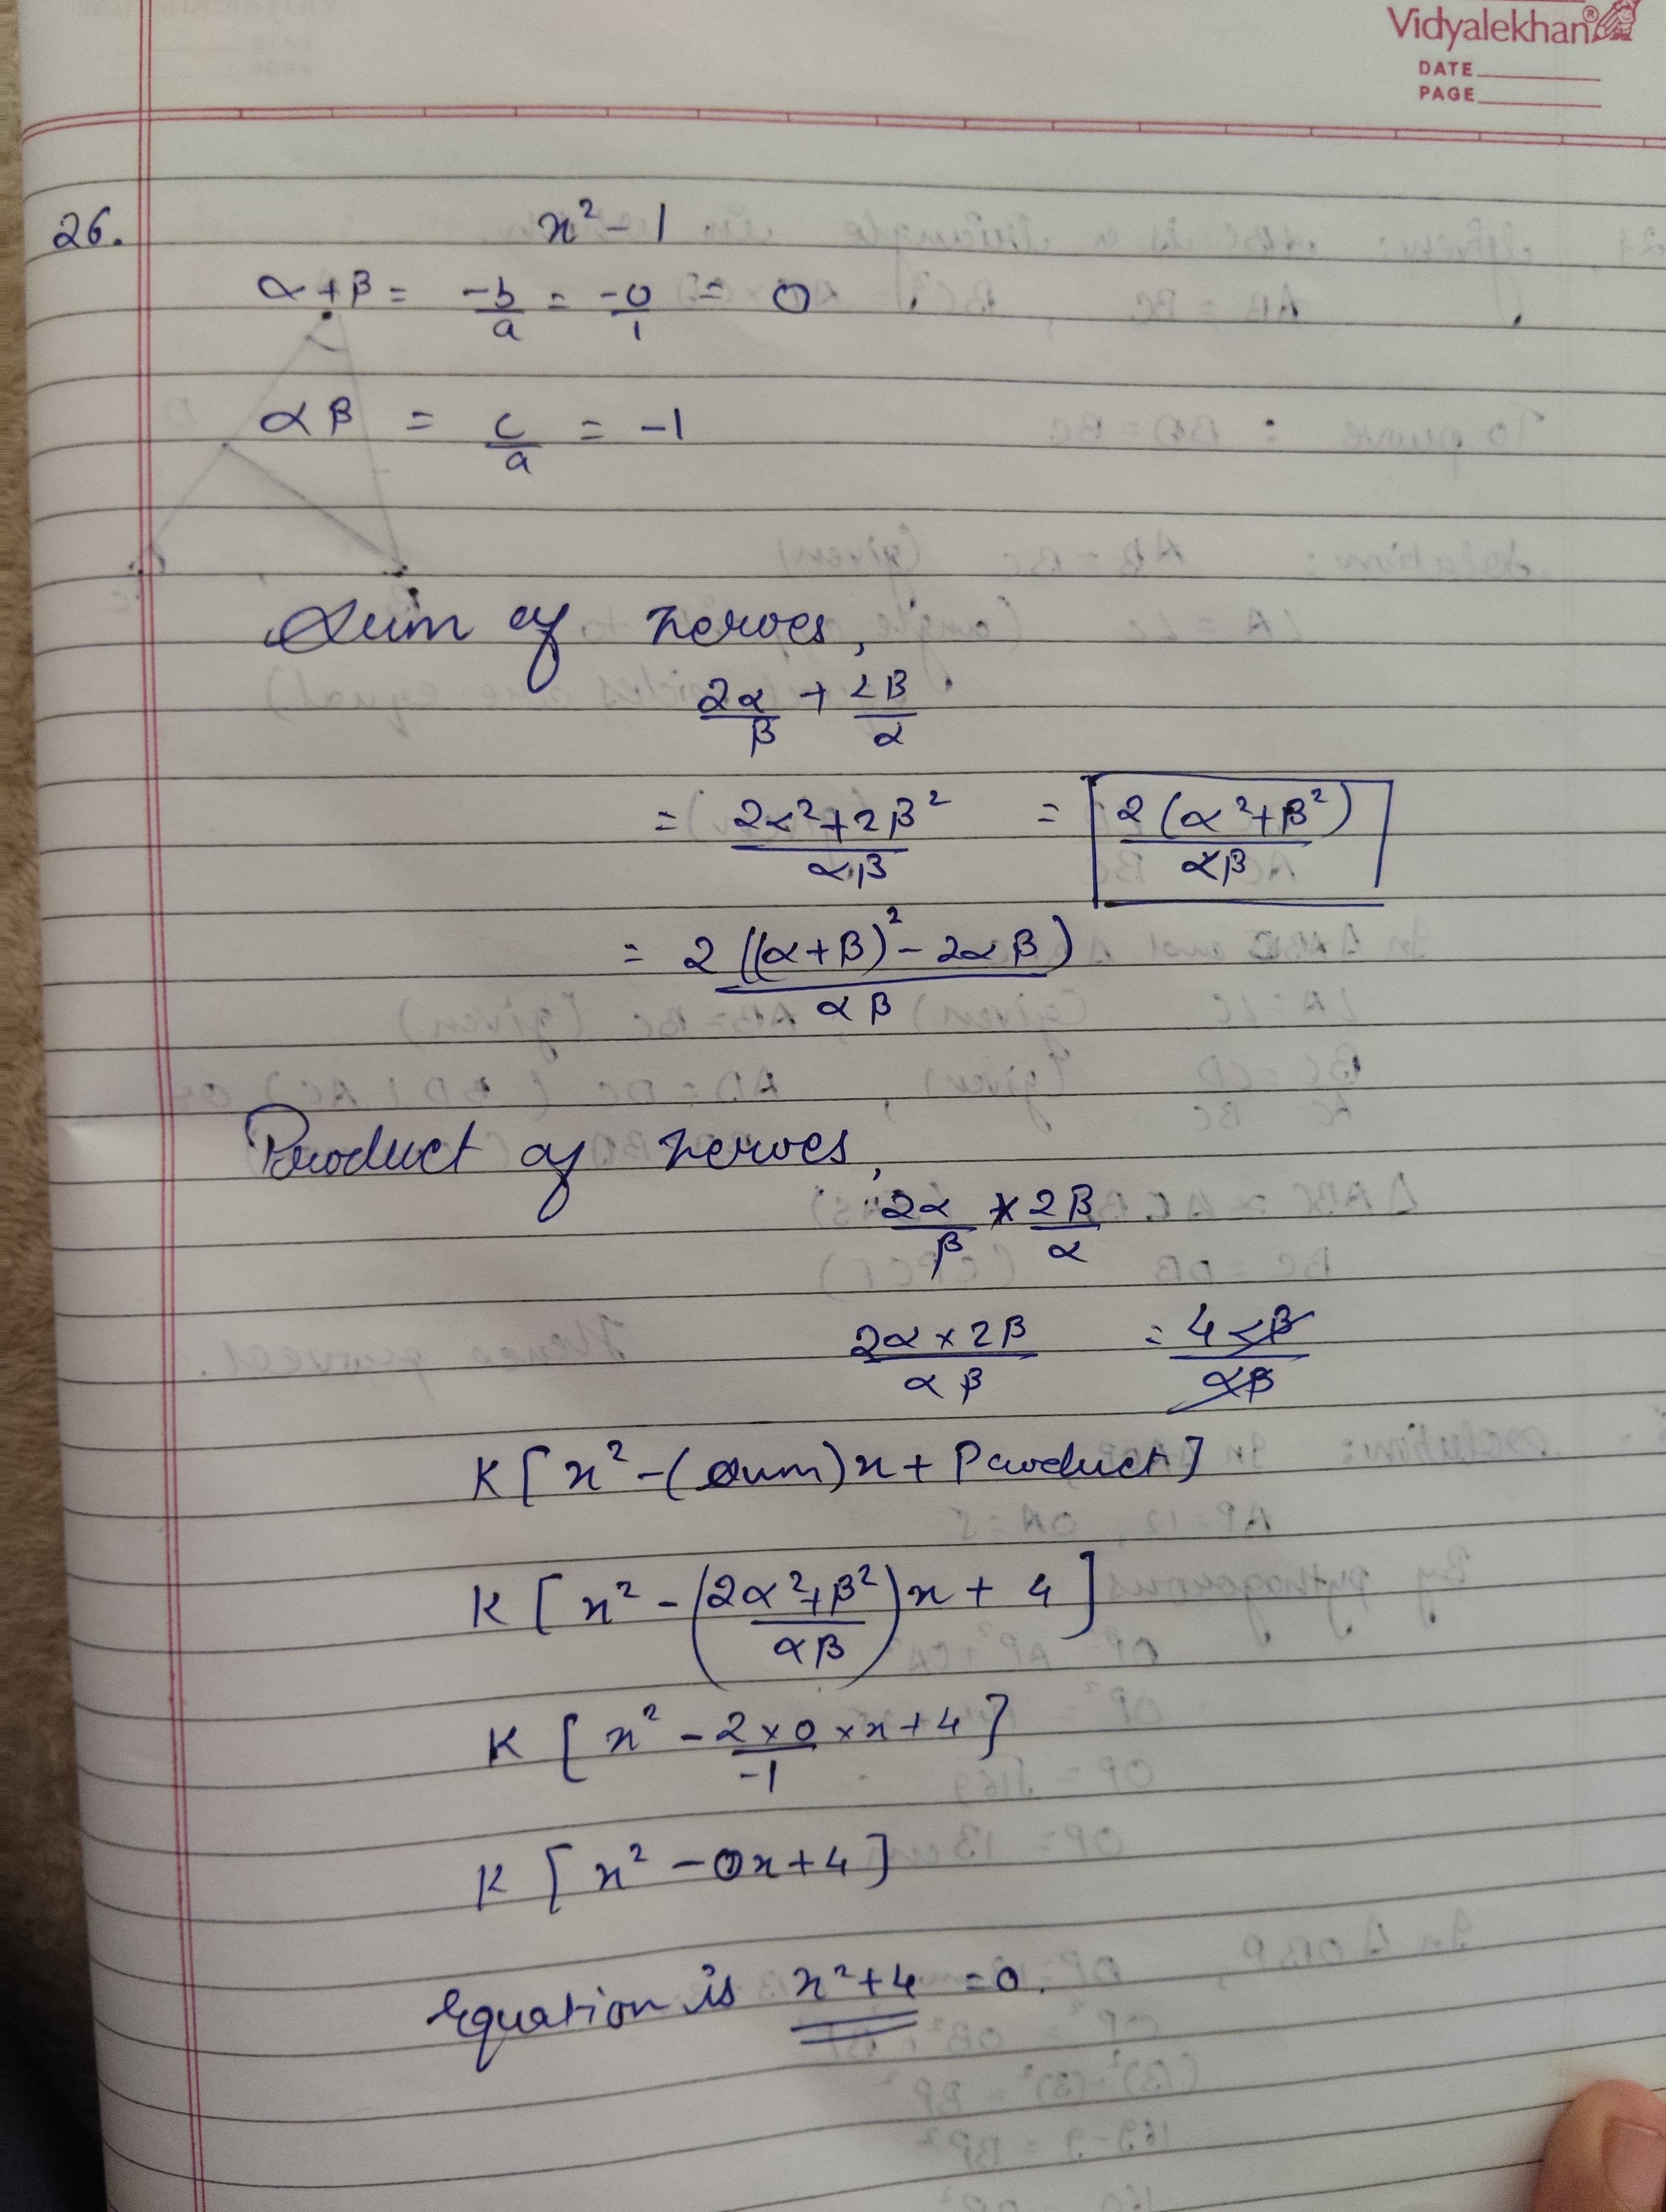 Vidyalekhan®
DATE
PAGE
26. x² - 1
α + β = -b/a = -0/1 = 0
αβ = c/a = -1
Sum of zeroes,
2α/β + 2β/α
= (2α² + 2β²)/αβ = 2(α² + β²)/αβ
= 2((α+β)² - 2αβ)/αβ
Product of zeroes,
2α/β × 2β/α
(2α × 2β)/αβ = 4αβ/αβ
K[x² - (sum)x + Product]
K[x² - (2α² + β²/αβ)x + 4]
K[x² - 2×0/-1 × x + 4]
K[x² - 0x + 4]
Equation is x² + 4 = 0.